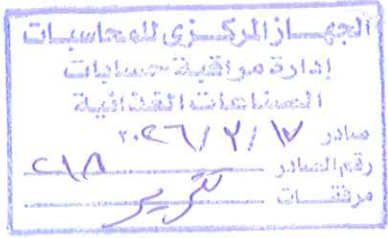 الجهاز المركزى للمحاسبات
إدارة مراقبة حسابات
الصناعات الغذائية
صادر ١٧/٢/٢٠٢٦
رقم الصادر ٢١٨
مرفقات تقرير